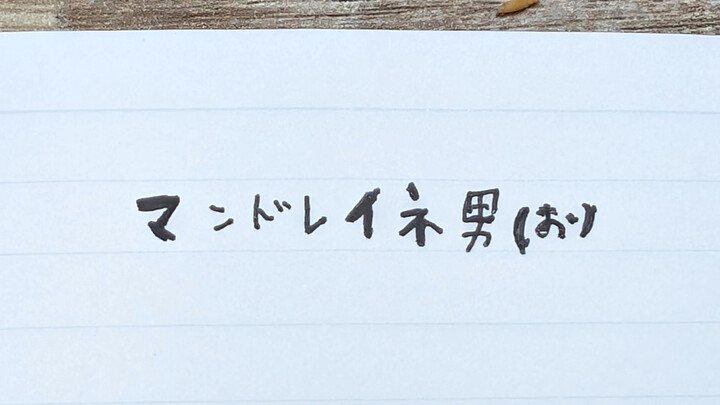 マンドレイネ男(お)